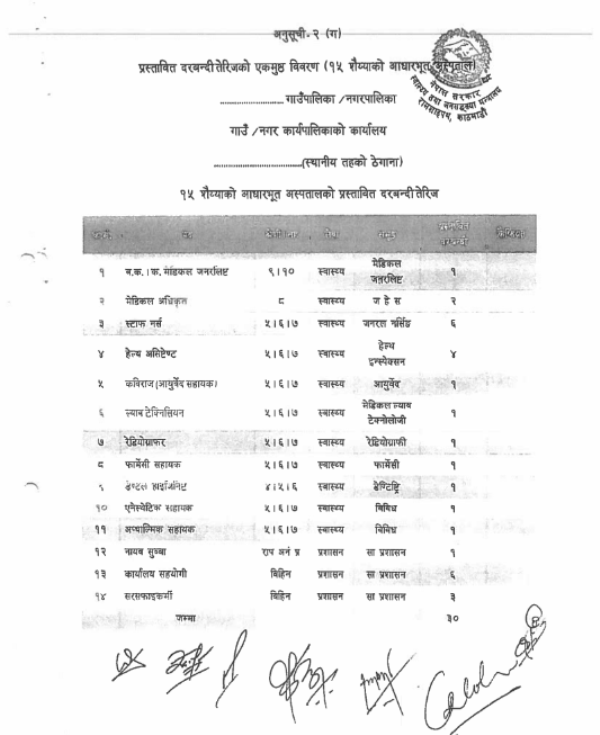 अनुसूची- २ (ग)
प्रस्तावित दरबन्दी तेरिजको एकमुष्ठ विवरण (१५ शैय्याको आधारभूत अस्पताल)
नेपाल सरकार
स्वास्थ्य तथा जनसङ्ख्या मन्त्रालय
रामशाहपथ, काठमाडौं
........................ गाउँपालिका /नगरपालिका
गाउँ /नगर कार्यपालिकाको कार्यालय
................................(स्थानीय तहको ठेगाना)
१५ शैय्याको आधारभूत अस्पतालको प्रस्तावित दरबन्दी तेरिज
पद
१ ब.क.।क. मेडिकल जनरलिष्ट ९।१० स्वास्थ्य मेडिकल जनरलिष्ट १
२ मेडिकल अधिकृत ८ स्वास्थ्य ज हे स २
३ स्टाफ नर्स ५।६।७ स्वास्थ्य जनरल नर्सिङ ६
४ हेल्थ असिष्टेण्ट ५।६।७ स्वास्थ्य हेल्थ इन्स्पेक्सन ४
५ कविराज (आयुर्वेद सहायक) ५।६।७ स्वास्थ्य आयुर्वेद १
६ ल्याब टेक्निसियन ५।६।७ स्वास्थ्य मेडिकल ल्याब टेक्नोलोजी १
७ रेडियोग्राफर ५।६।७ स्वास्थ्य रेडियोग्राफी १
८ फार्मेसी सहायक ५।६।७ स्वास्थ्य फार्मेसी १
९ डेण्टल हाइजिनिष्ट ४।५।६ स्वास्थ्य डेण्टिष्ट्रि १
१० एनेस्थेटिक सहायक ५।६।७ स्वास्थ्य विविध १
११ अप्थाल्मिक सहायक ५।६।७ स्वास्थ्य विविध १
१२ नायब सुब्बा राप अनं प्र प्रशासन सा प्रशासन १
१३ कार्यालय सहयोगी विहिन प्रशासन सा प्रशासन ६
१४ सरसफाइकर्मी विहिन प्रशासन सा प्रशासन ३
जम्मा ३०